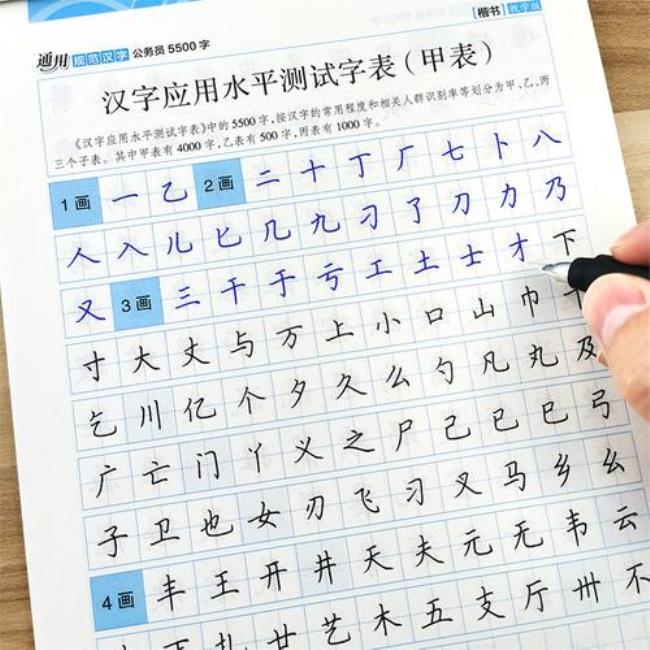 [楷书] 教学版
通用 规范汉字 公务员 5500 字
汉字应用水平测试字表（甲表）
《汉字应用水平测试字表》中的 5500 字，按汉字的常用程度和相关人群识别率等划分为甲、乙、丙
三个子表。其中甲表有 4000 字，乙表有 500 字，丙表有 1000 字。
1画 一 乙 2画 二 十 丁 厂 七 卜 八
人 入 儿 匕 几 九 刁 了 刀 力 乃
又 3画 三 干 于 亏 工 土 士 才 下
寸 大 丈 与 万 上 小 口 山 巾
乞 川 亿 个 夕 久 么 勺 凡 丸 及
广 亡 门 丫 义 之 尸 己 已 巳 弓
子 卫 也 女 刃 飞 习 叉 马 乡 幺
4画 丰 王 开 井 天 夫 元 无 韦 云
廿 艺 木 五 支 厅 卅 不